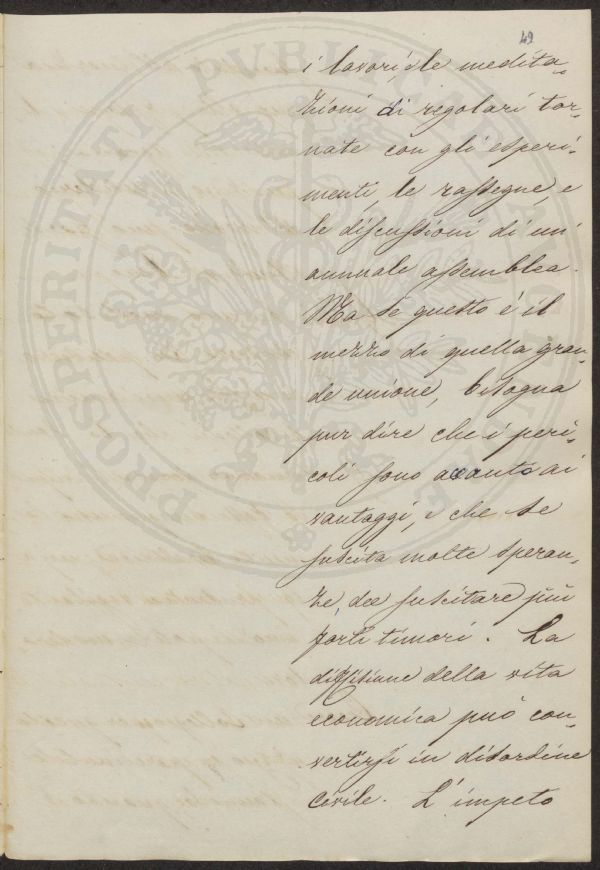 49
i lavori, le medita-
zioni di regolari tor-
nate con gli esperi-
menti, le rassegne, e
le discussioni di un'
annuale assemblea.
Ma se questo è il
mezzo di quella gran-
de unione, bisogna
pur dire che i peri-
coli sono accanto ai
vantaggi, e che se
suscita molte speran-
ze, dee suscitare più
forti timori. La
diffusione della vita
economica può con-
vertirsi in disordine
civile. L'impeto
PROSPERITATI PUBLICAE